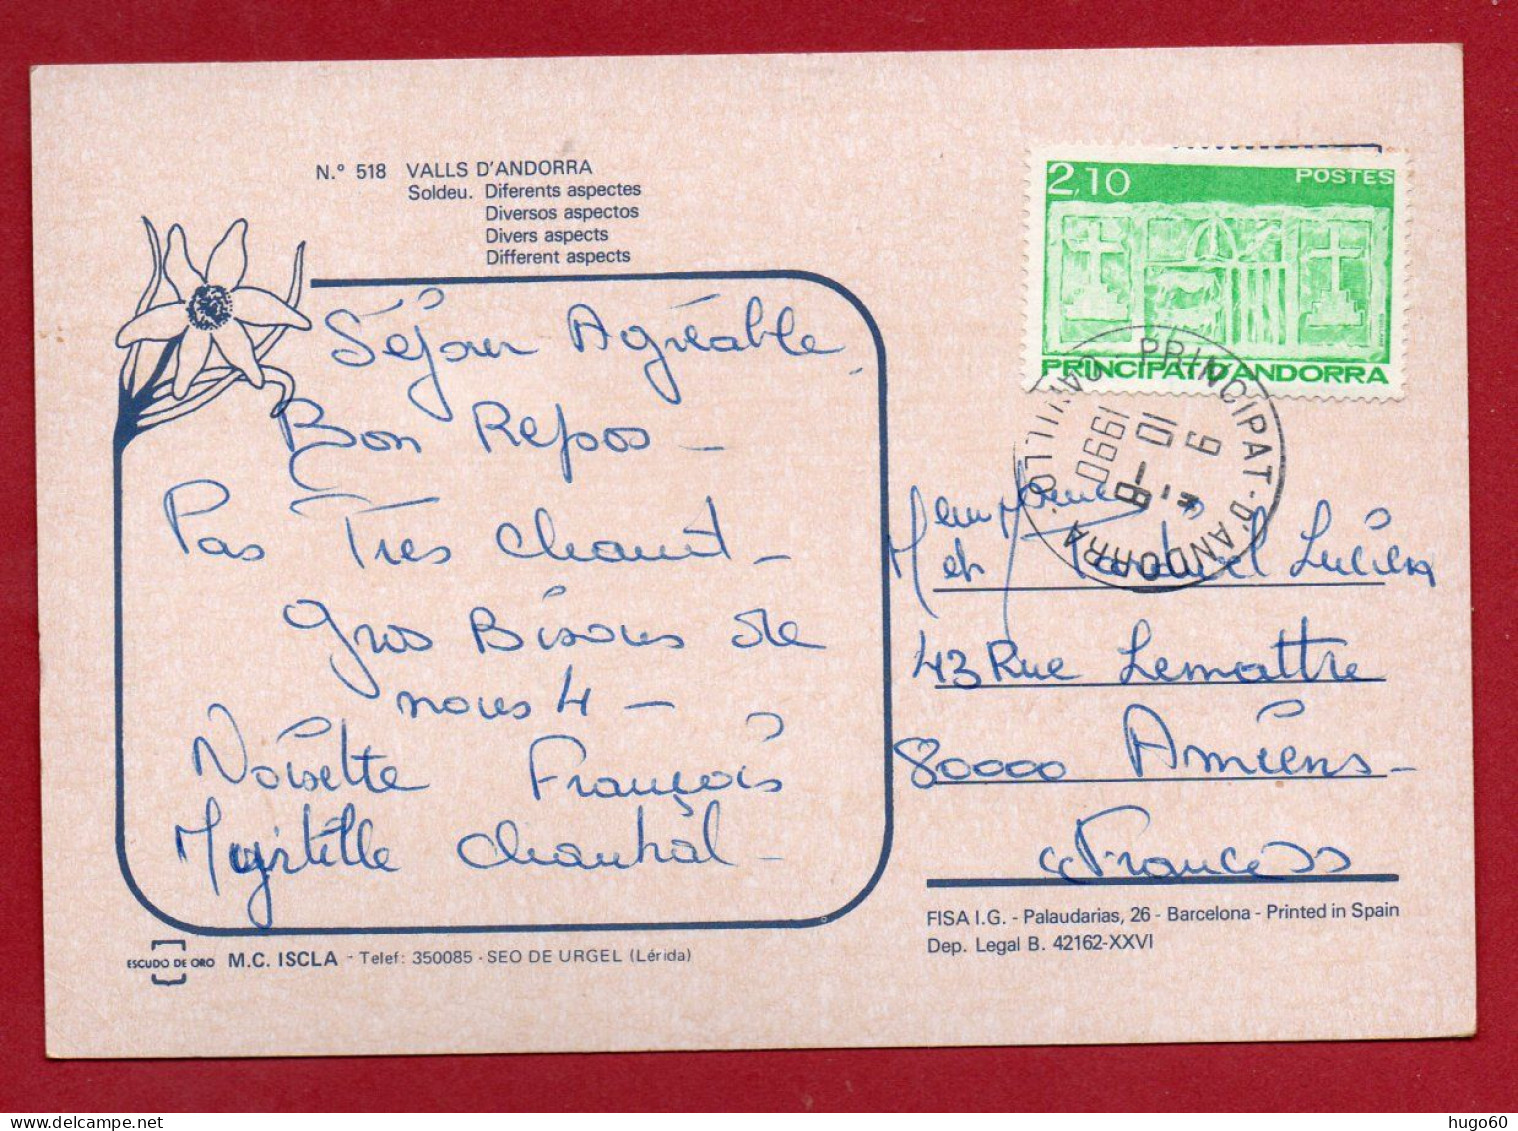 N.° 518 VALLS D'ANDORRA
Soldeu. Diferents aspectes
Diversos aspectos
Divers aspects
Different aspects
Séjour Agréable
Bon Repos -
Pas Très Chaud -
Gros Bisous de
nous 4 -
Noisette François
Myrtille Chantal -
ESCUDO DE ORO M.C. ISCLA - Telef: 350085 - SEO DE URGEL (Lérida)
2,10 POSTES
PRINCIPAT D'ANDORRA
PRINCIPAT-D'ANDORRA
CANILLO
ANDORRA
9
10
1990
et Lucien
43 Rue Lemattre
80000 Amiens -
"France"
FISA I.G. - Palaudarias, 26 - Barcelona - Printed in Spain
Dep. Legal B. 42162-XXVI
hugo60